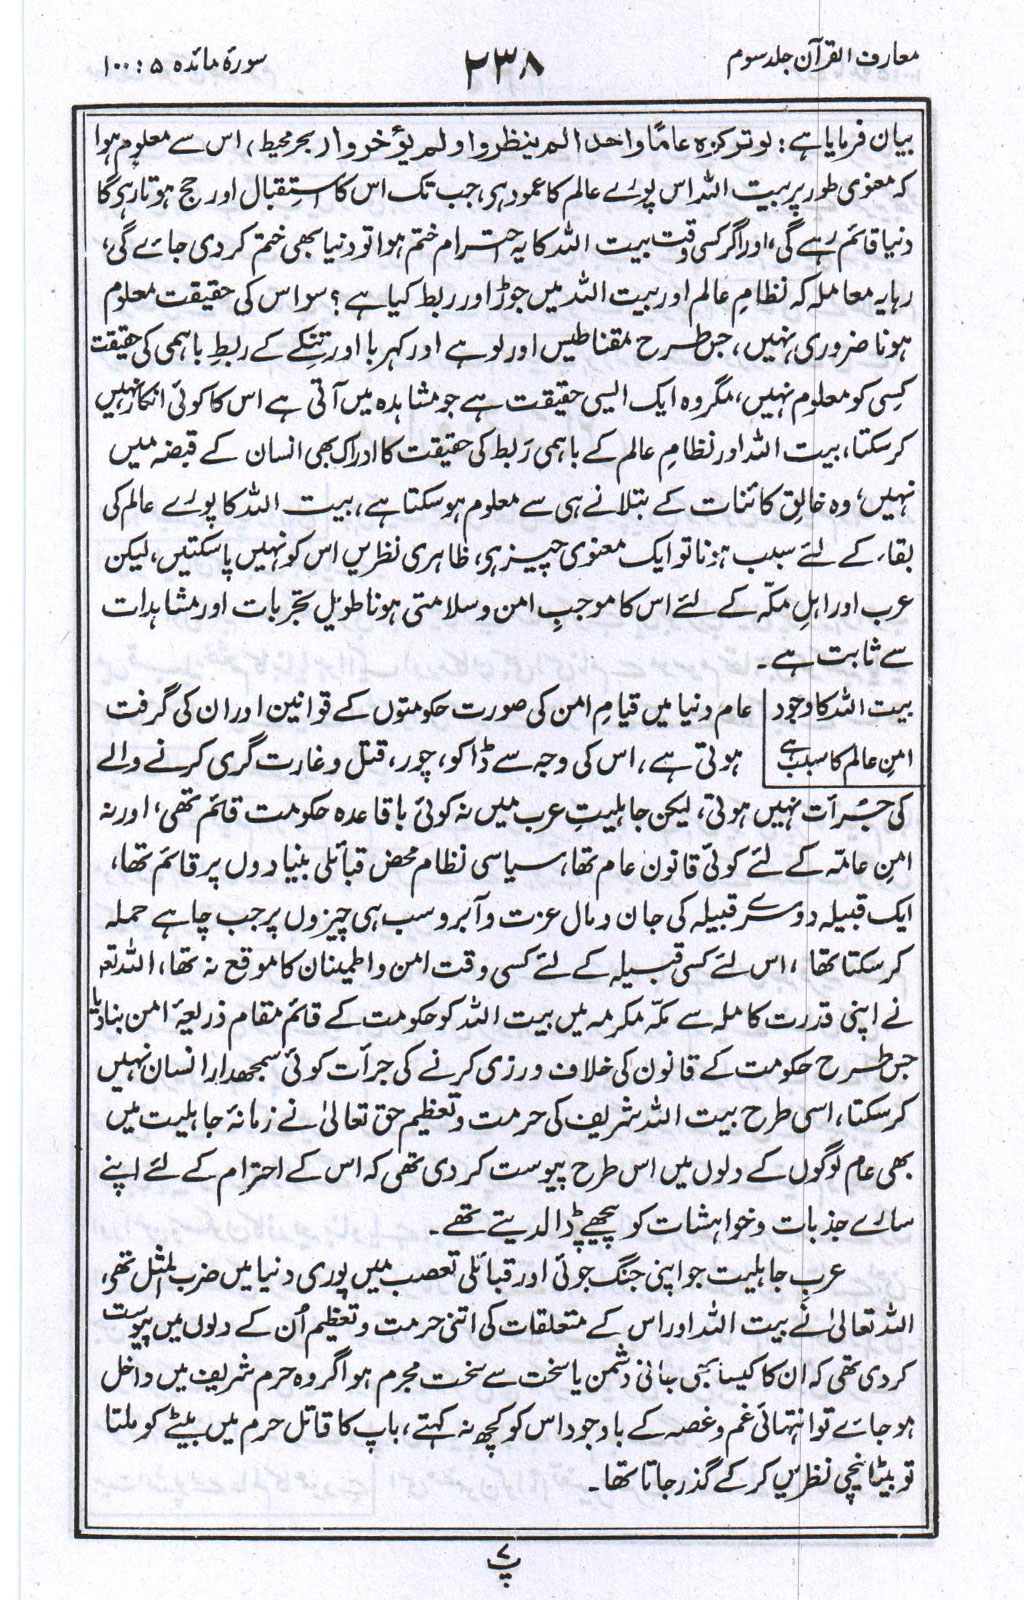 معارف القرآن جلد سوم
۲۳۸
سورۂ مائدہ ۵ : ۱۰۰
بیان فرمایا ہے : لو ترکوہ عامًا واحدا لم ینظروا ولم یؤخروا (بحر محیط) اس سے معلوم ہوا
کہ معنوی طور پر بیت اللہ اس پورے عالم کا عمود ہی، جب تک اس کا استقبال اور حج ہوتا رہی گا
دنیا قائم رہے گی، اور اگر کسی وقت بیت اللہ کا یہ احترام ختم ہوا تو دنیا بھی ختم کر دی جائے گی،
رہا یہ معاملہ کہ نظامِ عالم اور بیت اللہ میں جوڑ اور ربط کیا ہے؟ سو اس کی حقیقت معلوم
ہونا ضروری نہیں، جس طرح مقناطیس اور لوہے اور کہربا اور تنکے کے ربطِ باہمی کی حقیقت
کسی کو معلوم نہیں، مگر وہ ایک ایسی حقیقت ہے جو مشاہدہ میں آتی ہے اس کا کوئی انکار نہیں
کر سکتا، بیت اللہ اور نظامِ عالم کے باہمی ربط کی حقیقت کا ادراک بھی انسان کے قبضہ میں
نہیں، وہ خالقِ کائنات کے بتلانے ہی سے معلوم ہو سکتا ہے، بیت اللہ کا پورے عالم کی
بقاء کے لئے سبب ہونا تو ایک معنوی چیز ہی، ظاہری نظریں اس کو نہیں پا سکتیں، لیکن
عرب اور اہلِ مکّہ کے لئے اس کا موجبِ امن و سلامتی ہونا طویل تجربات اور مشاہدات
سے ثابت ہے۔
بیت اللہ کا وجود
امنِ عالم کا سبب ہے
عام دنیا میں قیامِ امن کی صورت حکومتوں کے قوانین اور ان کی گرفت
ہوتی ہے، اس کی وجہ سے ڈاکو، چور، قتل و غارت گری کرنے والے
کی جُرأت نہیں ہوتی، لیکن جاہلیتِ عرب میں نہ کوئی باقاعدہ حکومت قائم تھی، اور نہ
امنِ عامّہ کے لئے کوئی قانونِ عام تھا، سیاسی نظام محض قبائلی بنیادوں پر قائم تھا،
ایک قبیلہ دوسرے قبیلہ کی جان و مال عزت و آبرو سب ہی چیزوں پر جب چاہے حملہ
کر سکتا تھا، اس لئے کسی قبیلہ کے لئے کسی وقت امن و اطمینان کا موقع نہ تھا، اللہ تعہ
نے اپنی قدرت کاملہ سے مکّہ مکرمہ میں بیت اللہ کو حکومت کے قائم مقام ذریعۂ امن بنادیا
جس طرح حکومت کے قانون کی خلاف ورزی کرنے کی جرأت کوئی سمجھدار انسان نہیں
کر سکتا، اسی طرح بیت اللہ شریف کی حرمت و تعظیم حق تعالیٰ نے زمانۂ جاہلیت میں
بھی عام لوگوں کے دلوں میں اس طرح پیوست کر دی تھی کہ اس کے احترام کے لئے اپنے
سارے جذبات و خواہشات کو پیچھے ڈالدیتے تھے۔
عربِ جاہلیت جو اپنی جنگ جوئی اور قبائلی تعصب میں پوری دنیا میں ضرب المثل تھی،
اللہ تعالیٰ نے بیت اللہ اور اس کے متعلقات کی اتنی حرمت و تعظیم اُن کے دلوں میں پیوست
کر دی تھی کہ ان کا کیسا بھی جانی دشمن یا سخت سے سخت مجرم ہو اگر وہ حرم شریف میں داخل
ہو جائے تو انتہائی غم و غصہ کے باوجود اس کو کچھ نہ کہتے، باپ کا قاتل حرم میں بیٹے کو ملتا
تو بیٹا نیچی نظریں کر کے گذر جاتا تھا۔
پ ۷